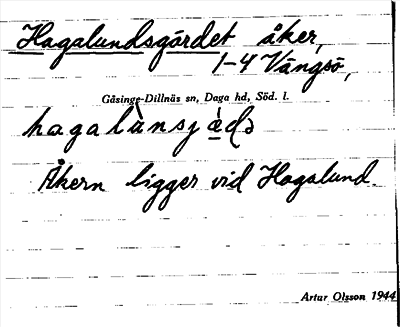 Hagalundsgärdet åker,
1-4 Vängsö,
Gåsinge-Dillnäs sn, Daga hd, Söd. l.
hagalùnsjæ̀ḍə
Åkern ligger vid Hagalund.
Artur Olsson 1944